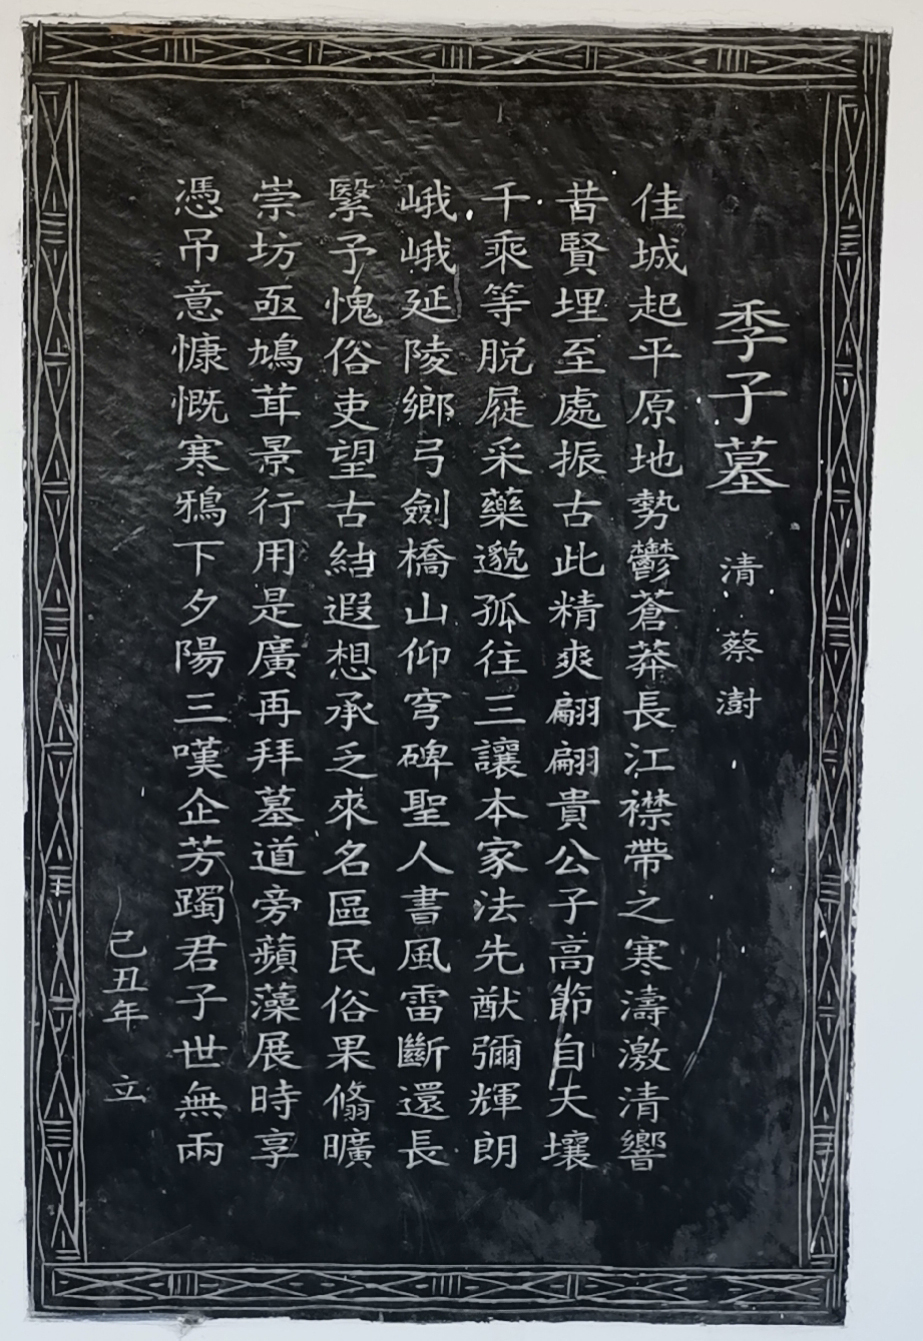 季子墓
清 蔡澍
佳城起平原地勢鬱蒼莽長江襟帶之寒濤激清響
昔賢埋至處振古此精爽翩翩貴公子高節自夫壤
千乘等脱屣采藥邈孤往三讓本家法先猷彌輝朗
峨峨延陵鄉弓劍橋山仰穹碑聖人書風雷斷還長
繄予愧俗吏望古結遐想承乏來名區民俗果翛曠
崇坊亟鳩茸景行用是廣再拜墓道旁蘋藻展時享
憑吊意慷慨寒鴉下夕陽三嘆企芳躅君子世無兩
己丑年 立